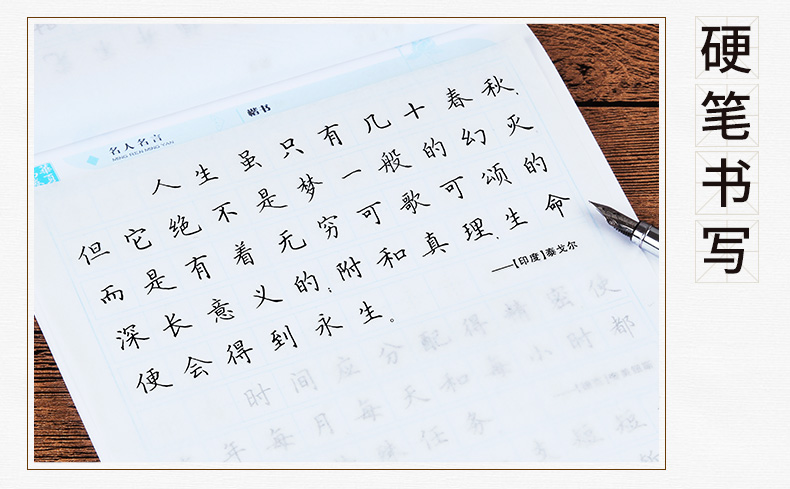 硬笔书写
楷书
名人名言
MING REN MING YAN
人生虽只有几十春秋,
但它绝不是梦一般的幻灭
而是有着无穷可歌可颂的
深长意义的;附和真理,生命
便会得到永生。
——[印度]泰戈尔
时间应分配得精密使
年每月每天和每小时都